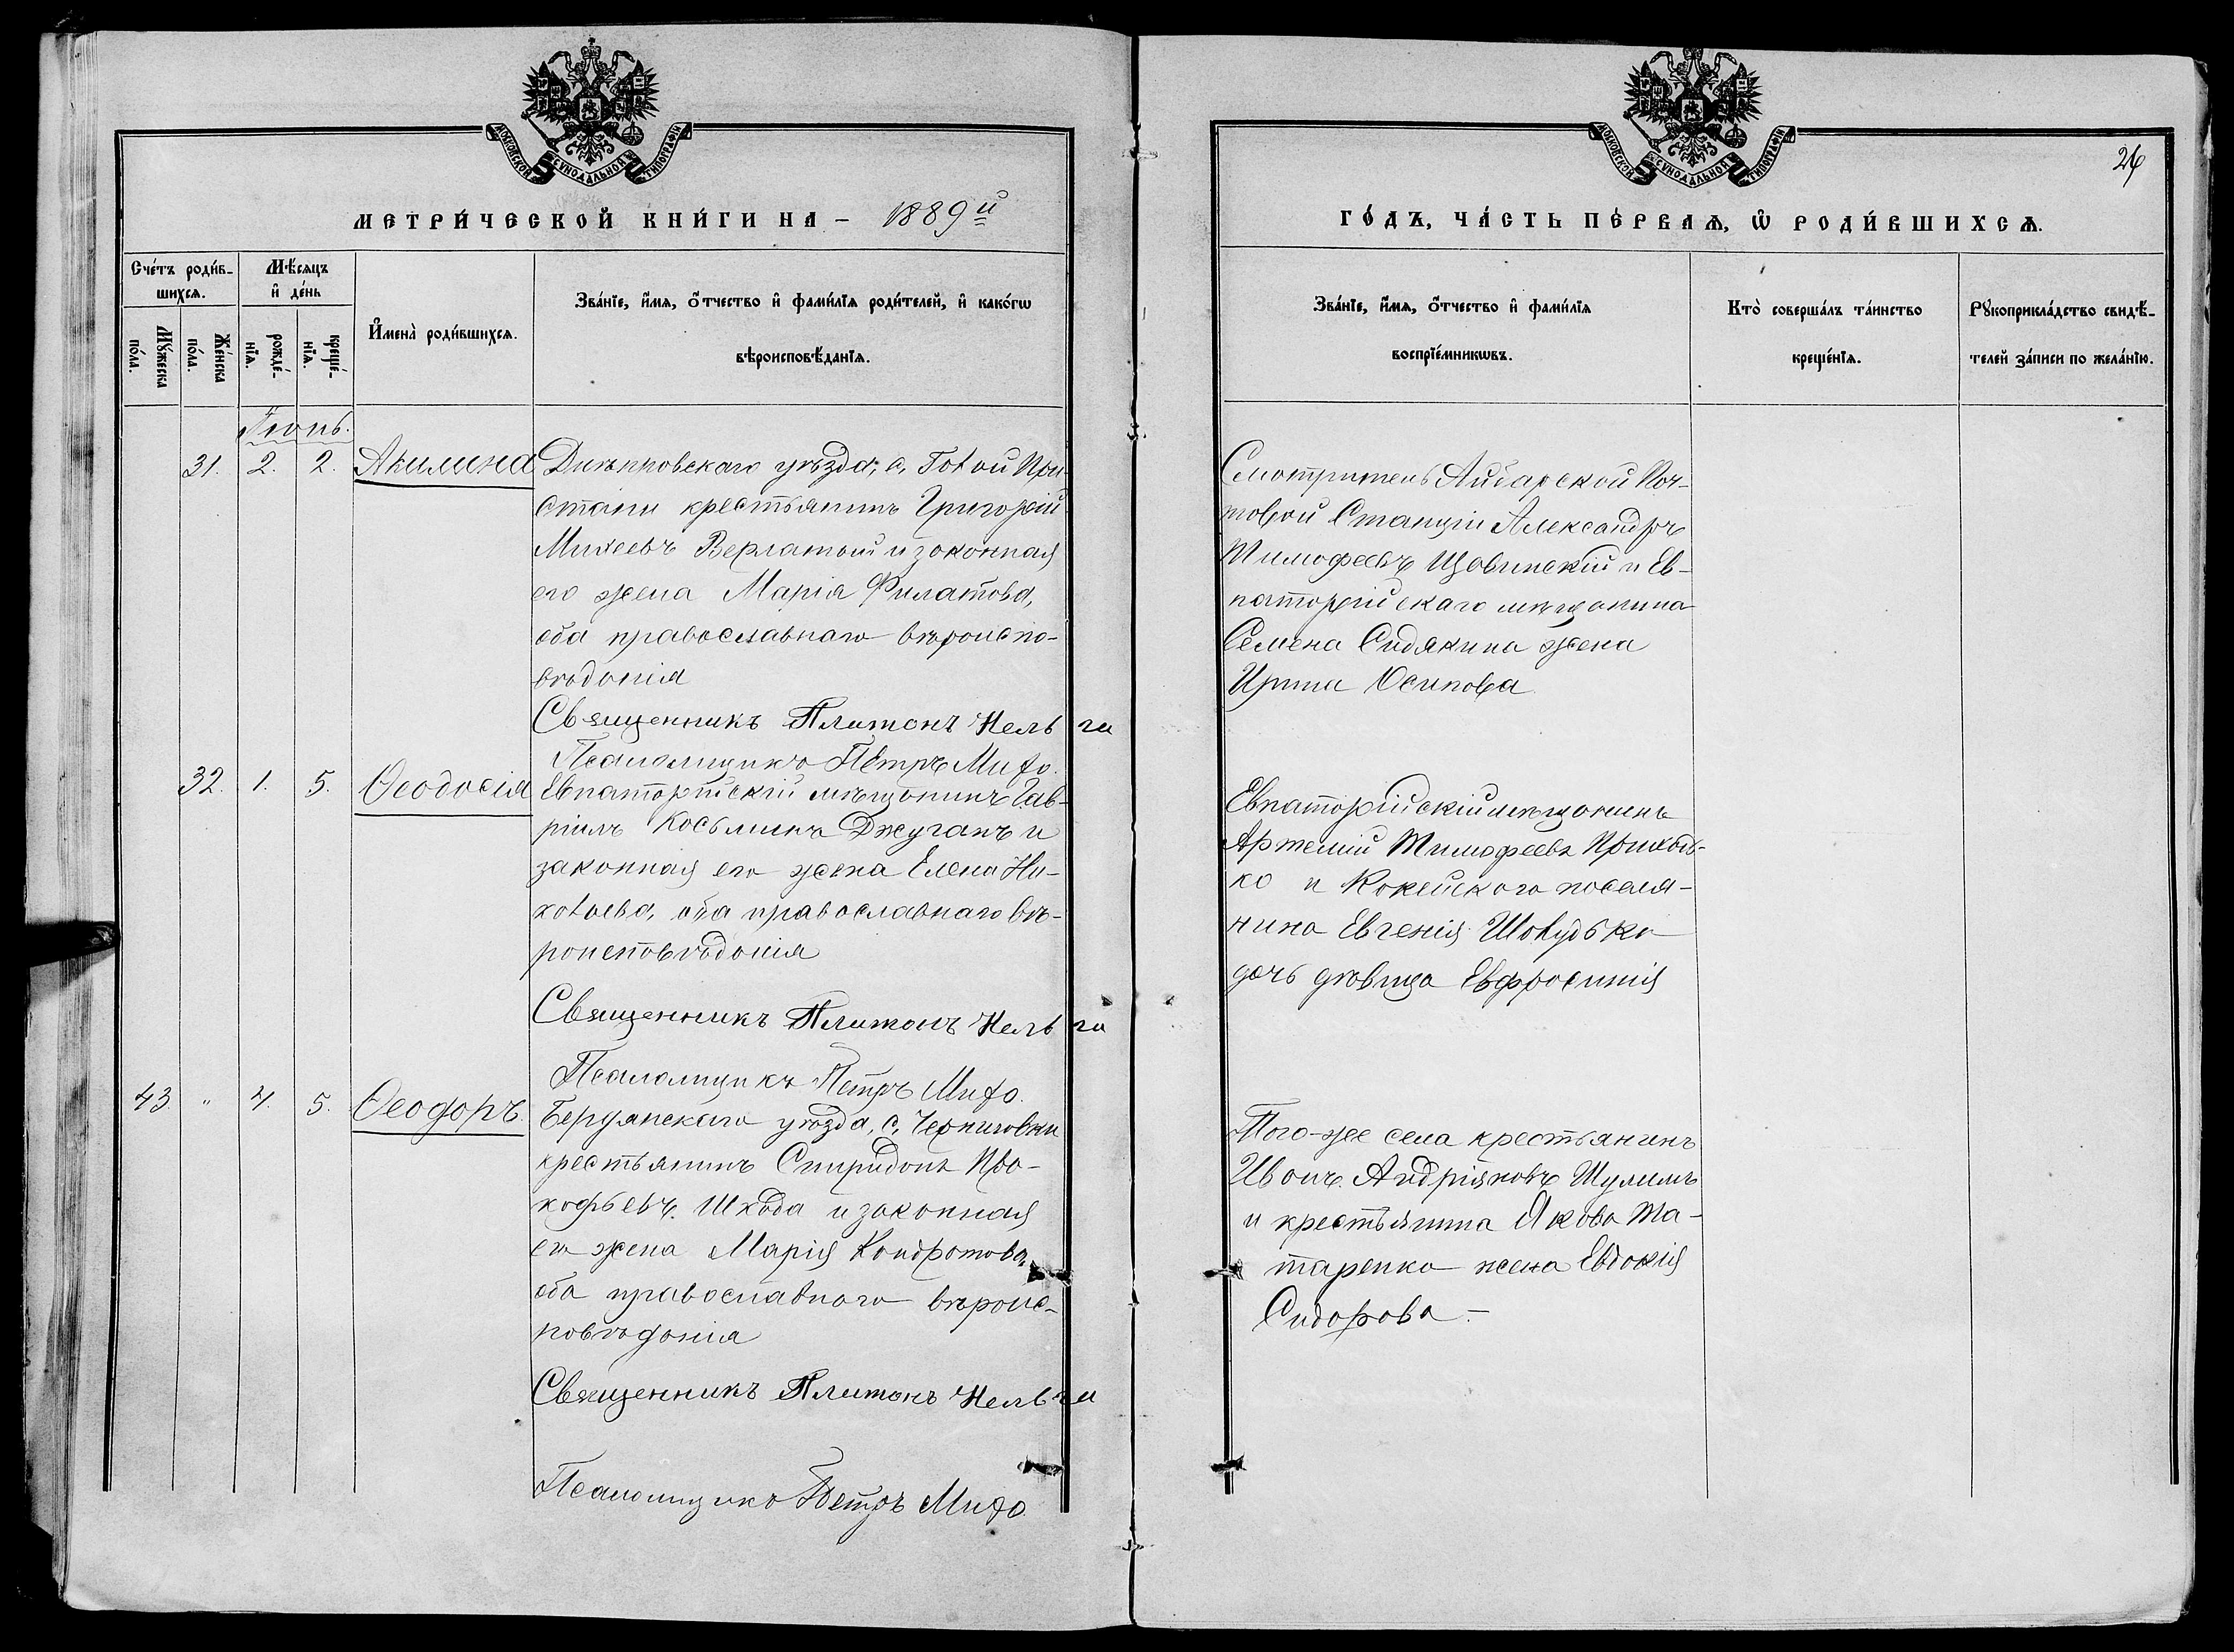 МОСКОВСКОЙ СѴНОДАЛЬНОЙ ТИПОГРАФІИ
МЕТРИ́ЧЕСКОЙ КНИ́ГИ НА – 1889й
Сче́тъ роди́в-
шихсѧ.
Мѣ́сѧцъ
и҆ де́нь
Мꙋ́жеска
по́ла.
Же́нска
по́ла.
рожде́-
нїѧ.
креще́-
нїѧ.
И҆мена̀ роди́вшихсѧ.
Зва́нїе, и҆́мѧ, ѻ҆́тчество и҆ фами́лїѧ роди́телей, и҆ како́гѡ
вѣроисповѣ́данїѧ.
Іюнь.
31. 2. 2. Акилина Днѣпровскаго уѣзда, с. Голой При-
стани крестьянинъ Григорій
Михеевъ Верлатый и законная
его жена Марія Филатова,
оба православнаго вѣроиспо-
вѣданія
Священникъ Платонъ Нельга
Псаломщикъ Петръ Мифо.
32. 1. 5. Ѳеодосія Евпаторійскій мѣщанинъ Гав-
ріилъ Косьминъ Джуганъ и
законная его жена Елена Ни-
колаева, оба православнаго вѣ-
роисповѣданія
Священникъ Платонъ Нельга
Псаломщикъ Петръ Мифо.
43. " 4. 5. Ѳеодоръ. Бердянскаго уѣзда, с. Черниговки
крестьянинъ Спиридонъ Про-
кофьевъ Шкода и законная
его жена Марія Кондратова,
оба православнаго вѣроис-
повѣданія
Священникъ Платонъ Нельга
Псаломщикъ Петръ Мифо.
МОСКОВСКОЙ СѴНОДАЛЬНОЙ ТИПОГРАФІИ
26
ГО́ДЪ, ЧА́СТЬ ПЕ́РВАѦ, Ѽ РОДИ́ВШИХСѦ.
Зва́нїе, и҆́мѧ, ѻ҆́тчество и҆ фами́лїѧ
воспрїе́мникѡвъ.
Кто̀ соверша́лъ та́инство
креще́нїѧ.
Рꙋкоприкла́дство свидѣ́-
телей за́писи по жела́нїю.
Смотритель Айбарской Поч-
товой Станціи Александръ
Тимофеевъ Щавинскій и Ев-
паторійскаго мѣщанина
Семена Сидякина жена
Ирина Осипова
Евпаторійскій мѣщанинъ
Артемій Тимофеевъ Приходь-
ко и Кокейского поселя-
нина Евгенія Шолудько
дочь дѣвица Евфросинія
Того-же села крестьянинъ
Иванъ Андріяновъ Шулимъ
и крестьянина Якова Та-
таренко жена Евдокія
Сидорова. –